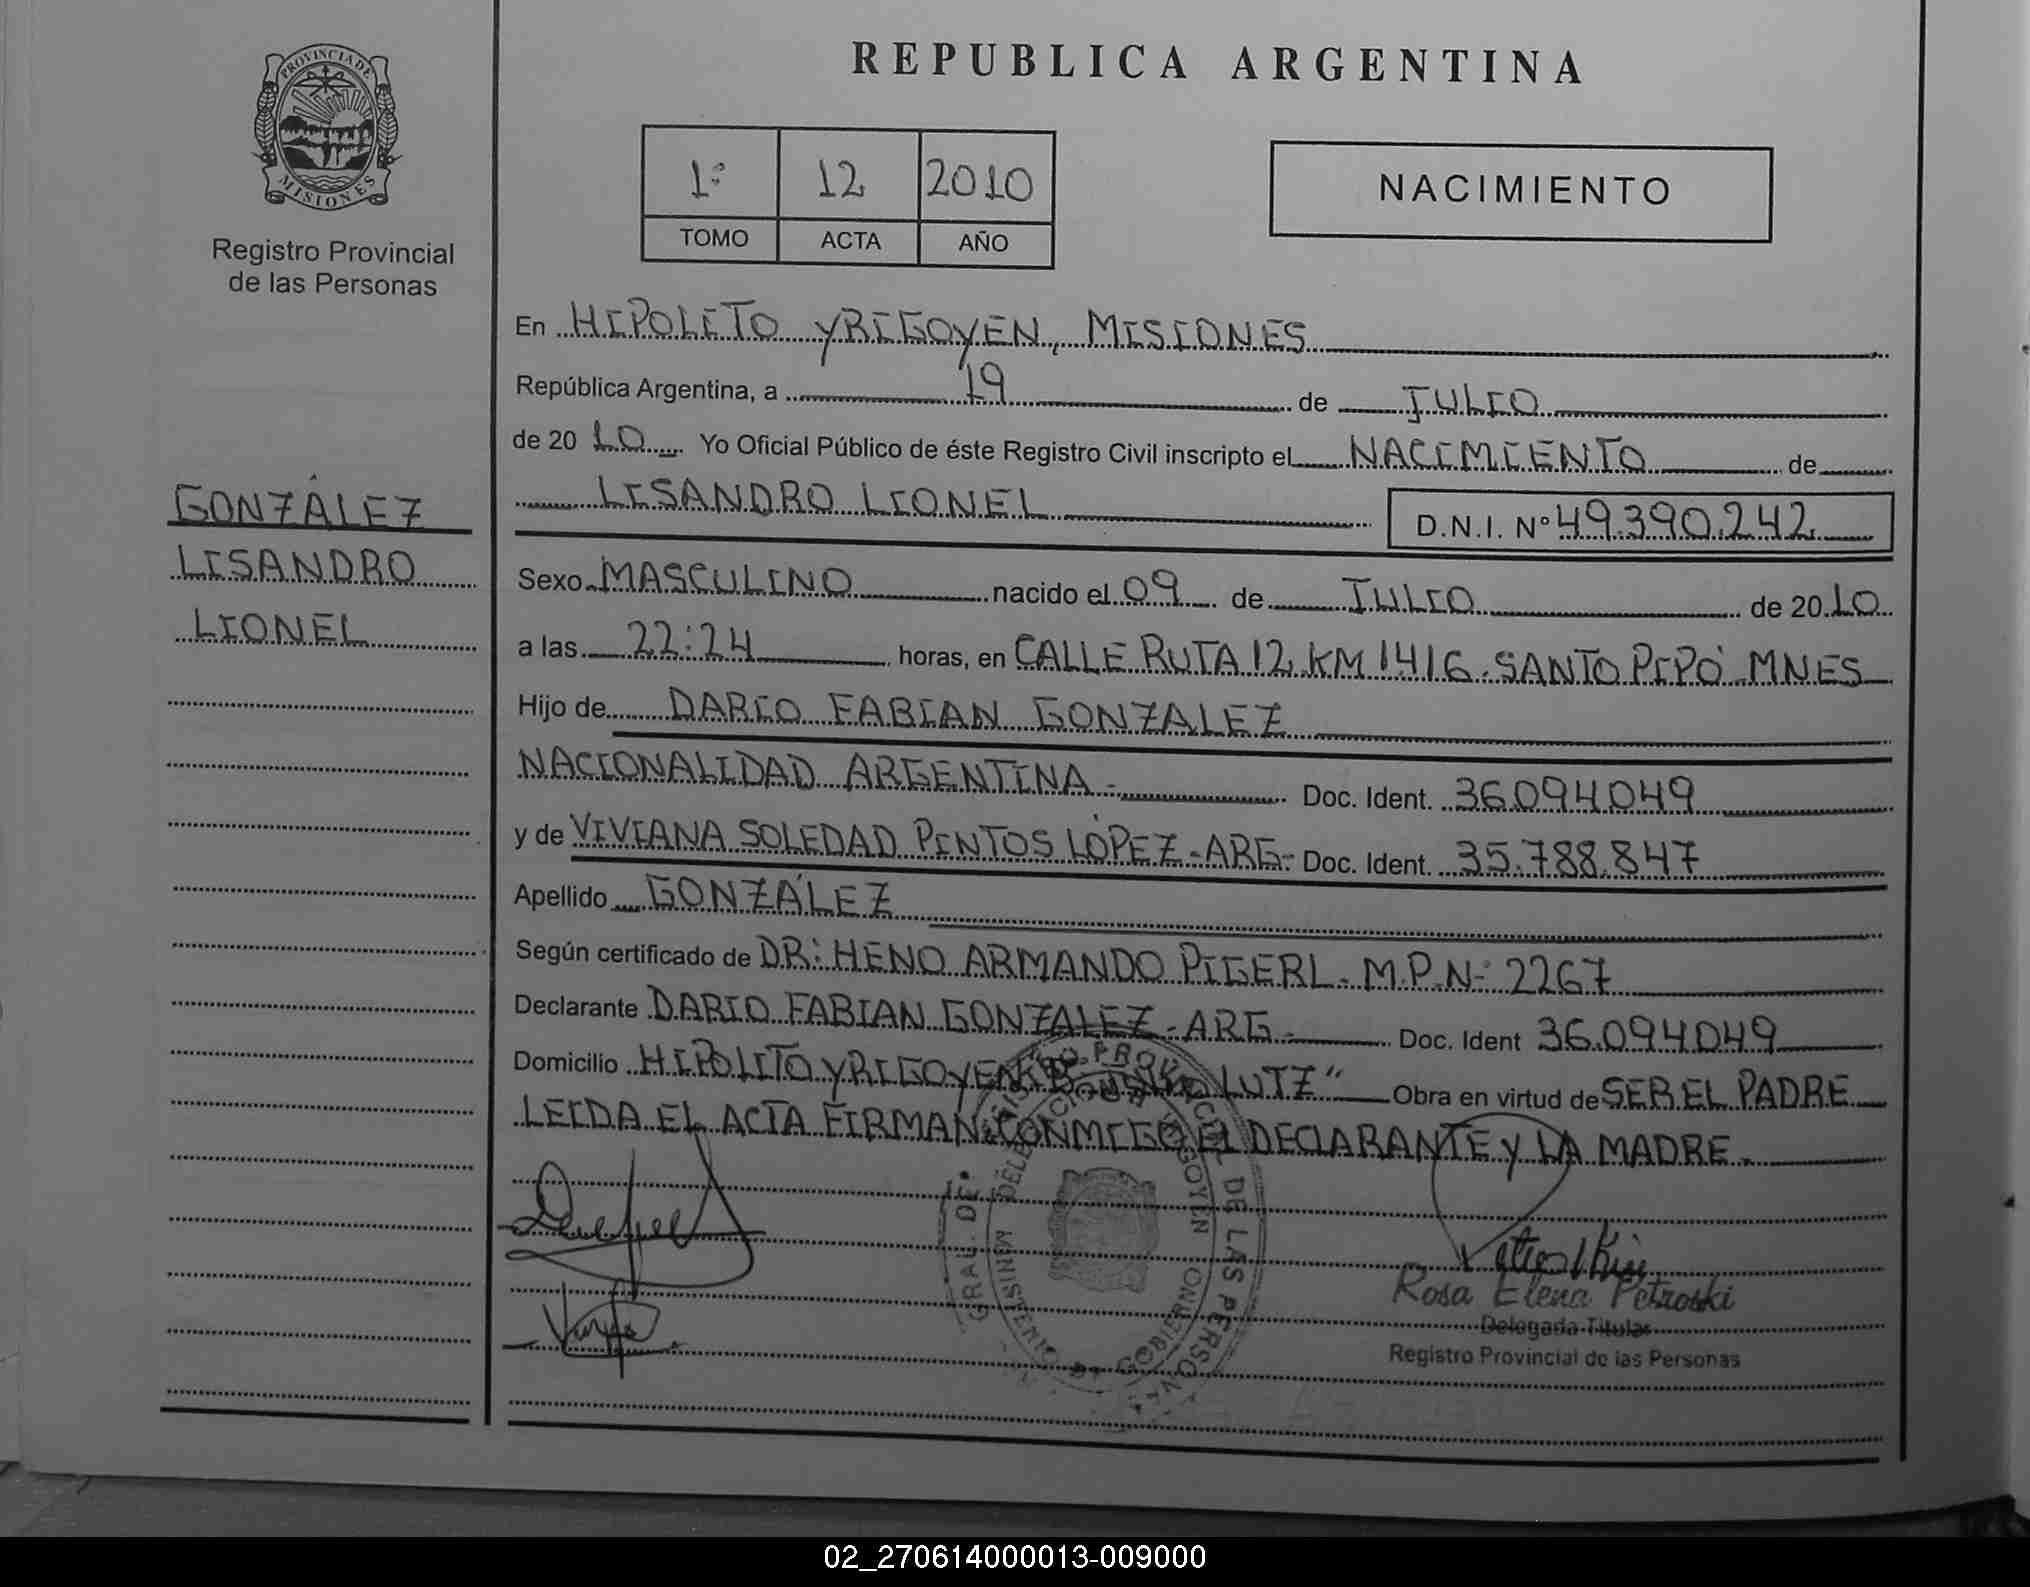 PROVINCIA DE
MISIONES
Registro Provincial
de las Personas
GONZÁLEZ
LISANDRO
LIONEL
REPUBLICA ARGENTINA
1º 12 2010
TOMO ACTA AÑO
NACIMIENTO
En HIPOLITO YRIGOYEN, MISIONES
República Argentina, a 19 de JULIO
de 20 10 Yo Oficial Público de éste Registro Civil inscripto el NACIMIENTO de
LISANDRO LIONEL D.N.I. Nº 49.390.242
Sexo MASCULINO nacido el 09 de JULIO de 20 10
a las 22:24 horas, en CALLE RUTA 12 KM 1416. SANTO PIPÓ MNES
Hijo de DARIO FABIAN GONZALEZ
NACIONALIDAD ARGENTINA - Doc. Ident. 36.094.049
y de VIVIANA SOLEDAD PINTOS LÓPEZ - ARG- Doc. Ident. 35.788.847
Apellido GONZÁLEZ
Según certificado de DR: HENO ARMANDO PIGERL. M.P.Nº 2267
Declarante DARIO FABIAN GONZALEZ - ARG - Doc. Ident 36.094.049
Domicilio HIPOLITO YRIGOYEN LUTZ" Obra en virtud de SER EL PADRE
LEIDA EL ACTA FIRMAN CONMIGO EL DECLARANTE Y LA MADRE.
GRAL. DE LAS PERSO
MINISTERIO DE GOBIERNO
Rosa Elena Petroski
Delegada Titular
Registro Provincial de las Personas
02_270614000013-009000